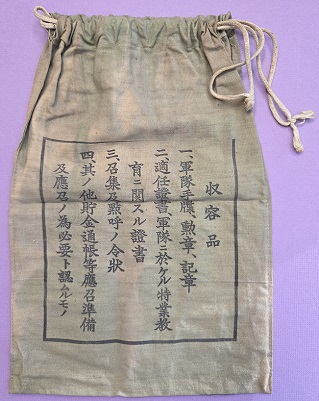 収容品
一、軍隊手牒、勲章、記章
二、適任證書、軍隊ニ於ケル特業教
育ニ関スル證書
三、召集及點呼ノ令狀
四、其ノ他貯金通帳等應召準備
及應召ノ為必要ト認ムルモノ